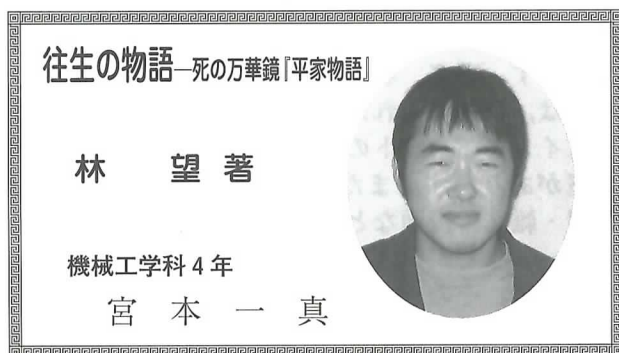 往生の物語―死の万華鏡『平家物語』
林 望 著
機械工学科4年
宮 本 一 真